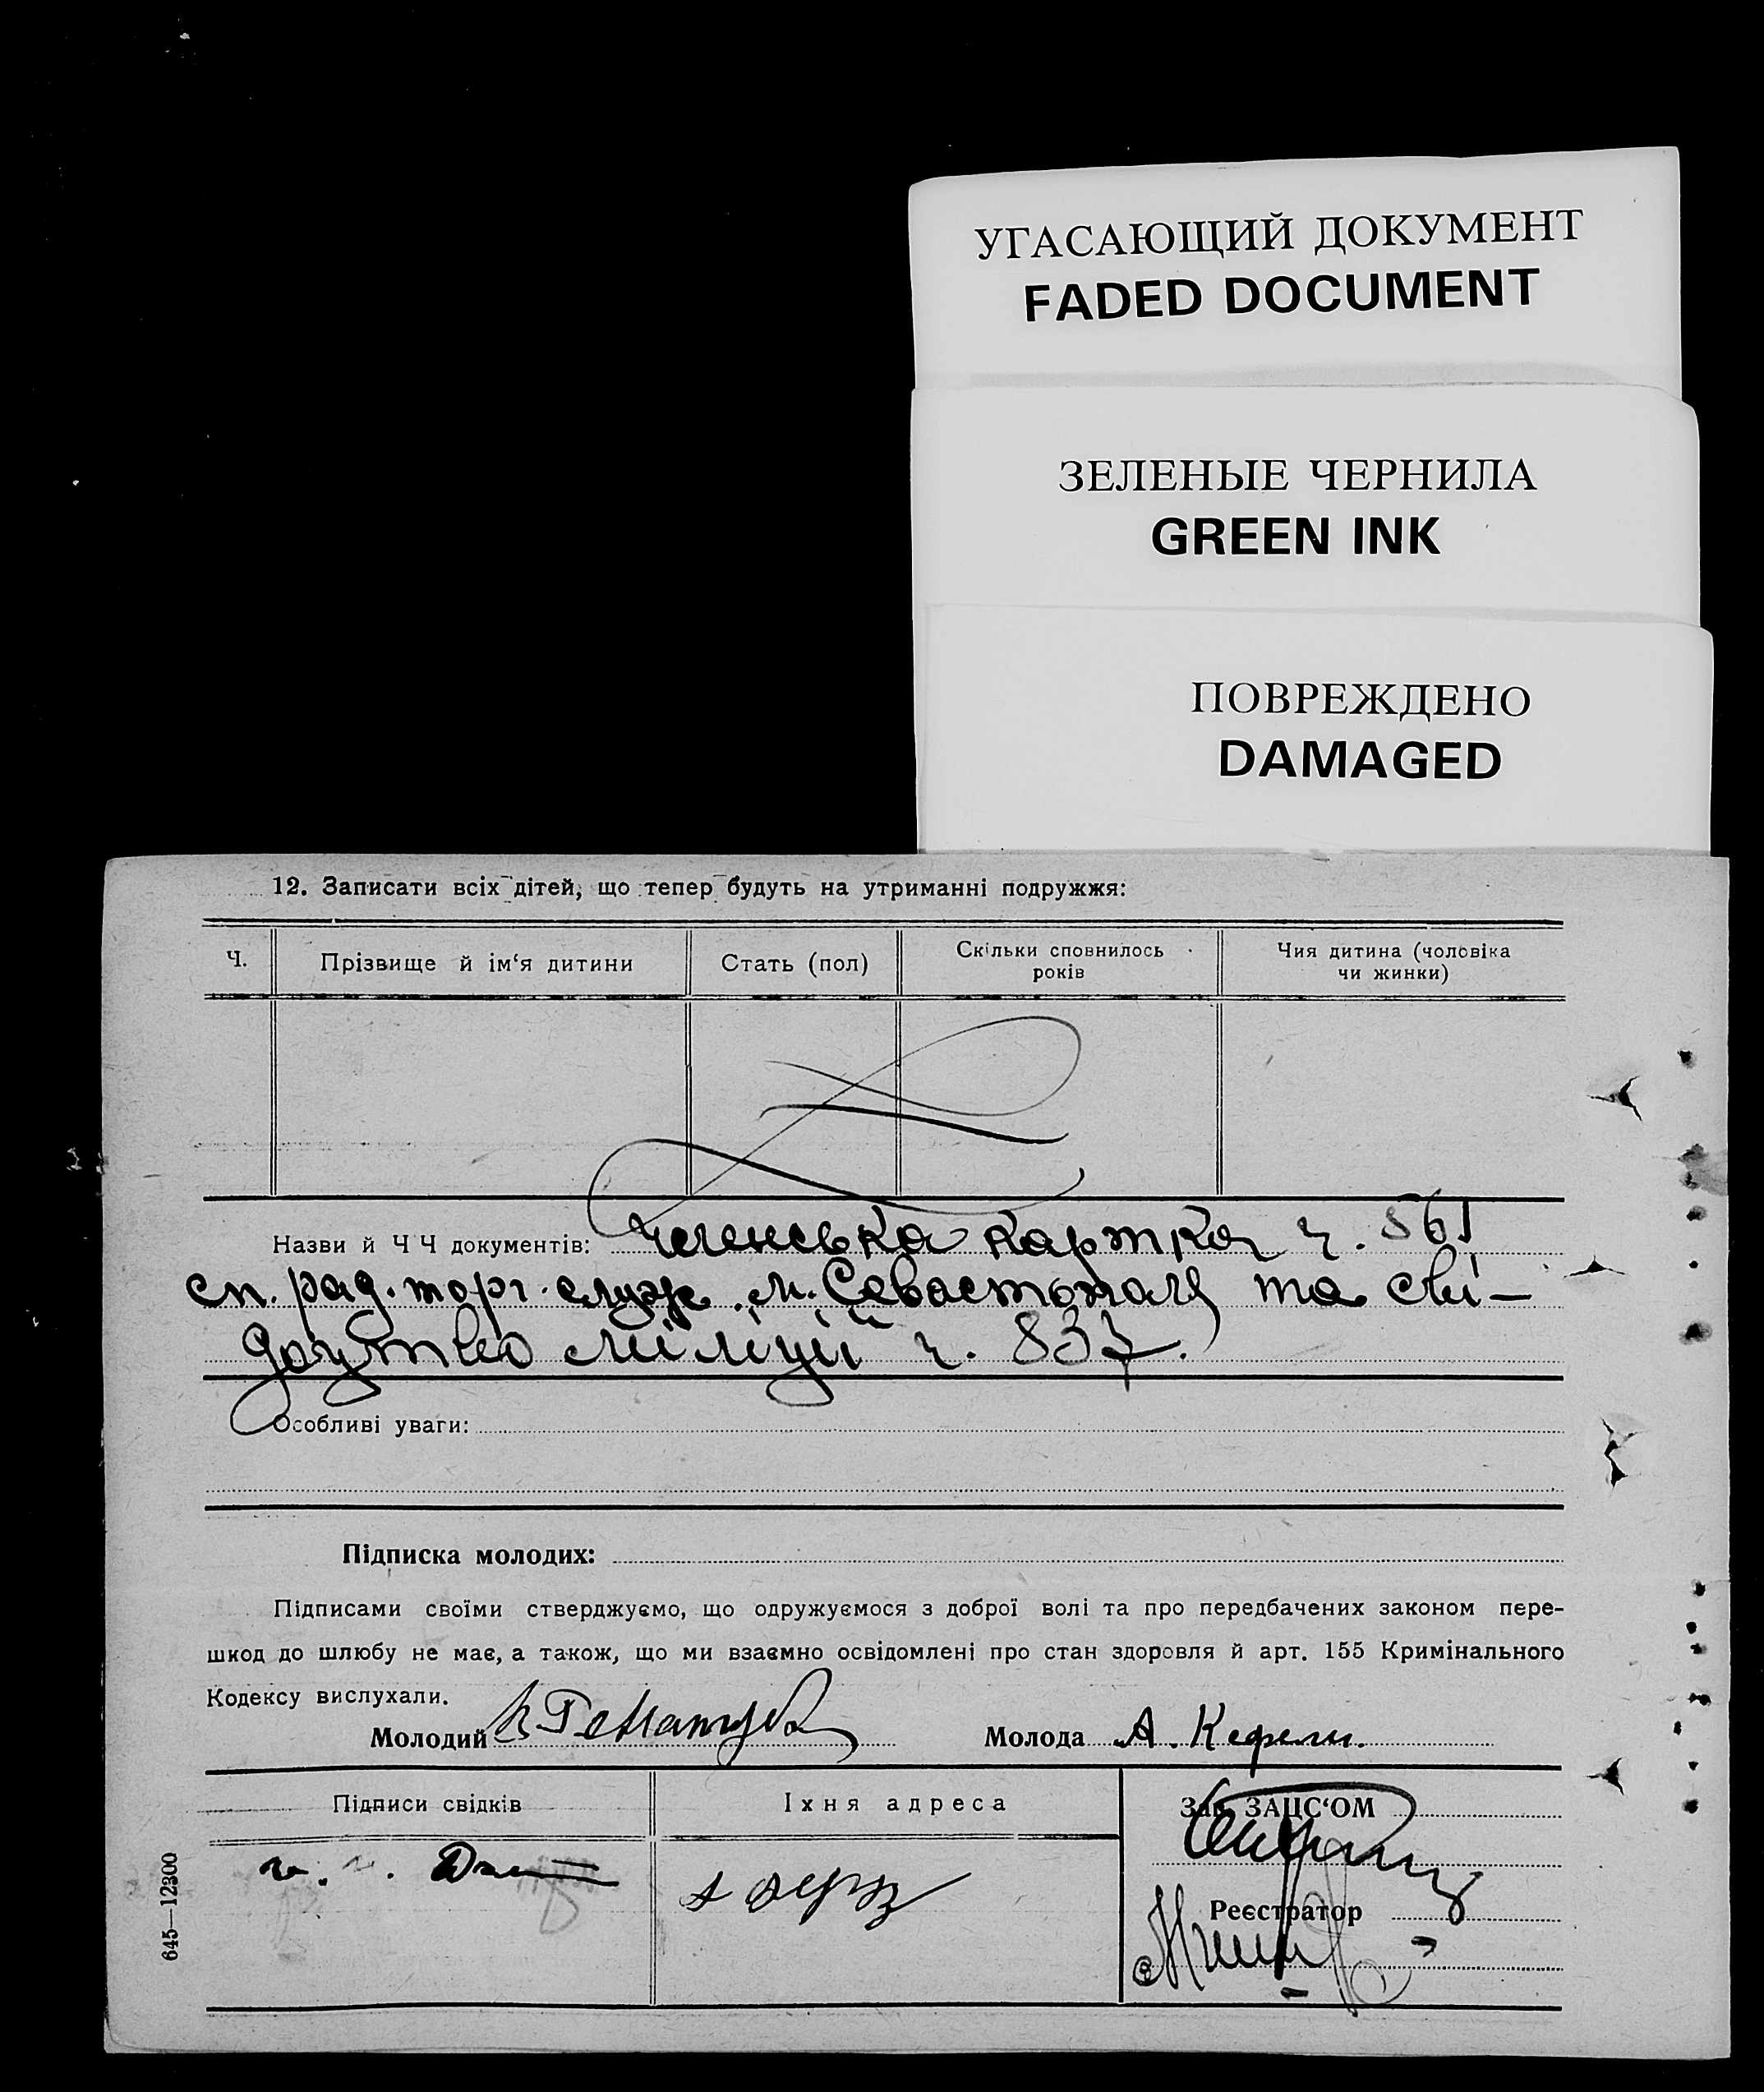 УГАСАЮЩИЙ ДОКУМЕНТ
FADED DOCUMENT
ЗЕЛЕНЫЕ ЧЕРНИЛА
GREEN INK
ПОВРЕЖДЕНО
DAMAGED
12. Записати всіх дітей, що тепер будуть на утриманні подружжя:
Ч.
Прізвище й ім‘я дитини
Стать (пол)
Скільки сповнилось
років
Чия дитина (чоловіка
чи жинки)
Назви й Ч Ч документів: Членська картка ч. 561
сп. рад. торг. служ. м. Севастополя та сві-
доцтво міліції ч. 837.
Особливі уваги:
Підписка молодих:
Підписами своїми стверджуємо, що одружуємося з доброї волі та про передбачених законом пере-
шкод до шлюбу не має, а також, що ми взаємно освідомлені про стан здоровля й арт. 155 Кримінального
Кодексу вислухали.
Молодий
Молода А. Кефели.
Підписи свідків
Їхня адреса
Зав. ЗАЦС‘ОМ
Реєстратор
645—12300